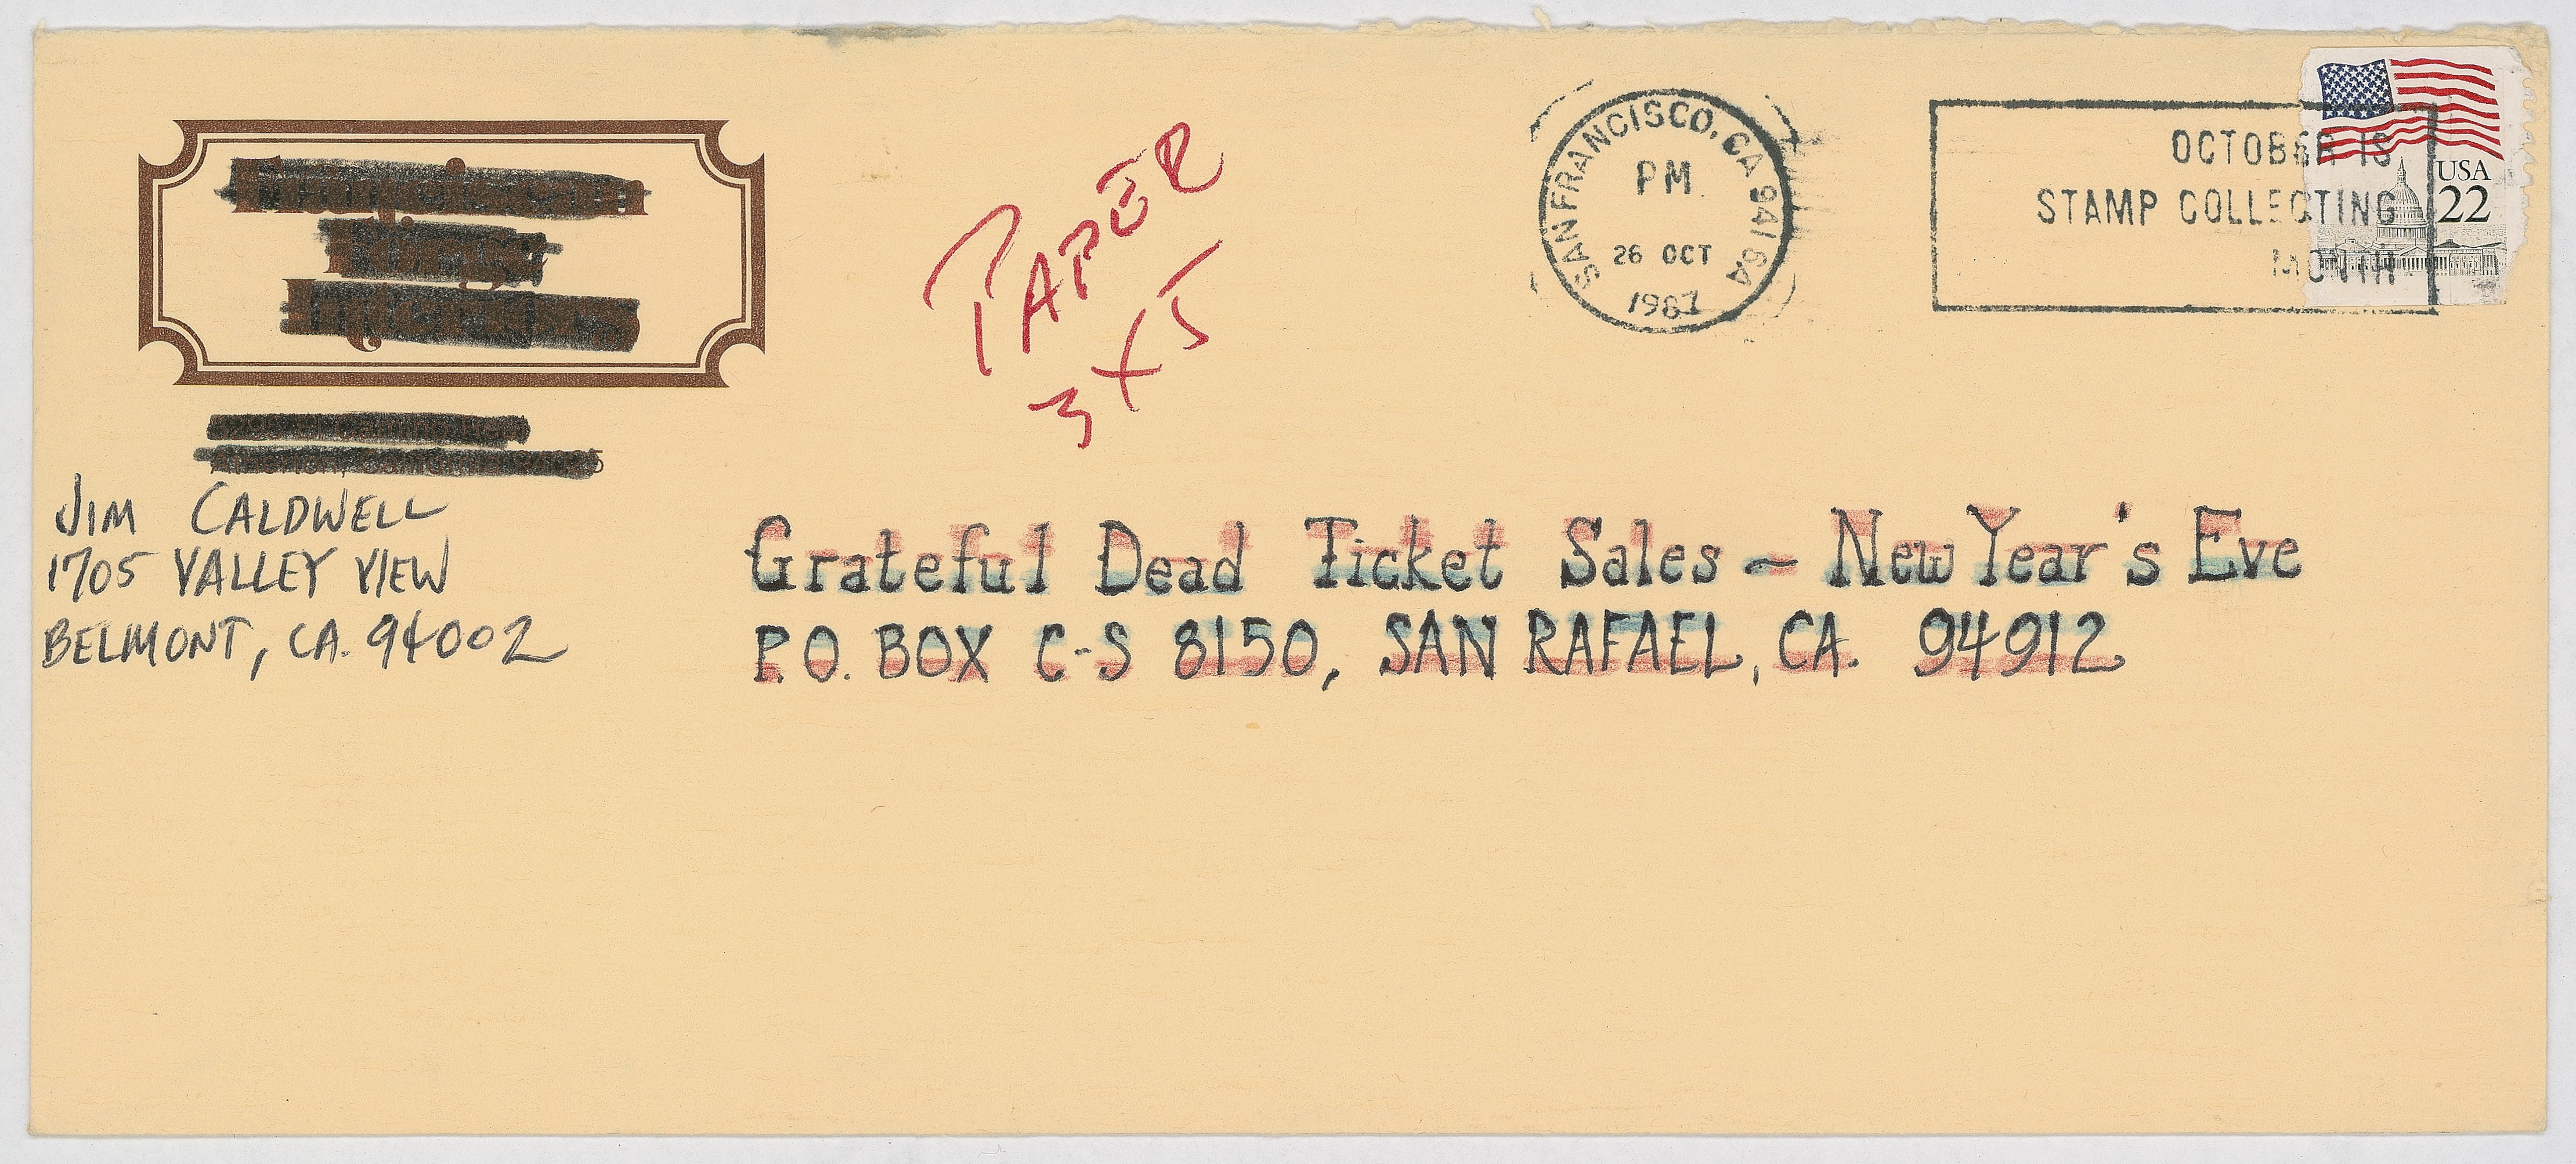 PAPER
3X5
SAN FRANCISCO, CA 941 6A
PM
26 OCT
1987
OCTOBER IS
STAMP COLLECTING
MONTH
USA
22
JIM CALDWELL
1705 VALLEY VIEW
BELMONT, CA. 94002
Grateful Dead Ticket Sales ~ New Year's Eve
P.O. BOX C-S 8150, SAN RAFAEL, CA. 94912